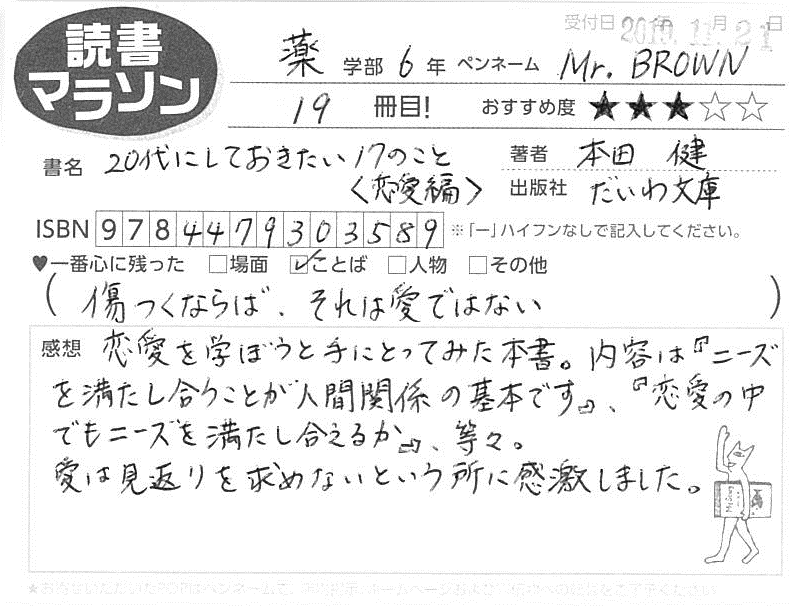 受付日 2019年11月21日
読書
マラソン
薬 学部 6 年 ペンネーム Mr. BROWN
19 冊目! おすすめ度 ★★★☆☆
書名 20代にしておきたい17のこと
〈恋愛編〉
著者 本田 健
出版社 だいわ文庫
ISBN 9784479303589 ※「ー」ハイフンなしで記入してください。
♥一番心に残った □場面 ☑ことば □人物 □その他
(傷つくならば、それは愛ではない)
感想 恋愛を学ぼうと手にとってみた本書。内容は『ニーズ
を満たし合うことが人間関係の基本です』、『恋愛の中
でもニーズを満たし合えるか』、等々。
愛は見返りを求めないという所に感激しました。